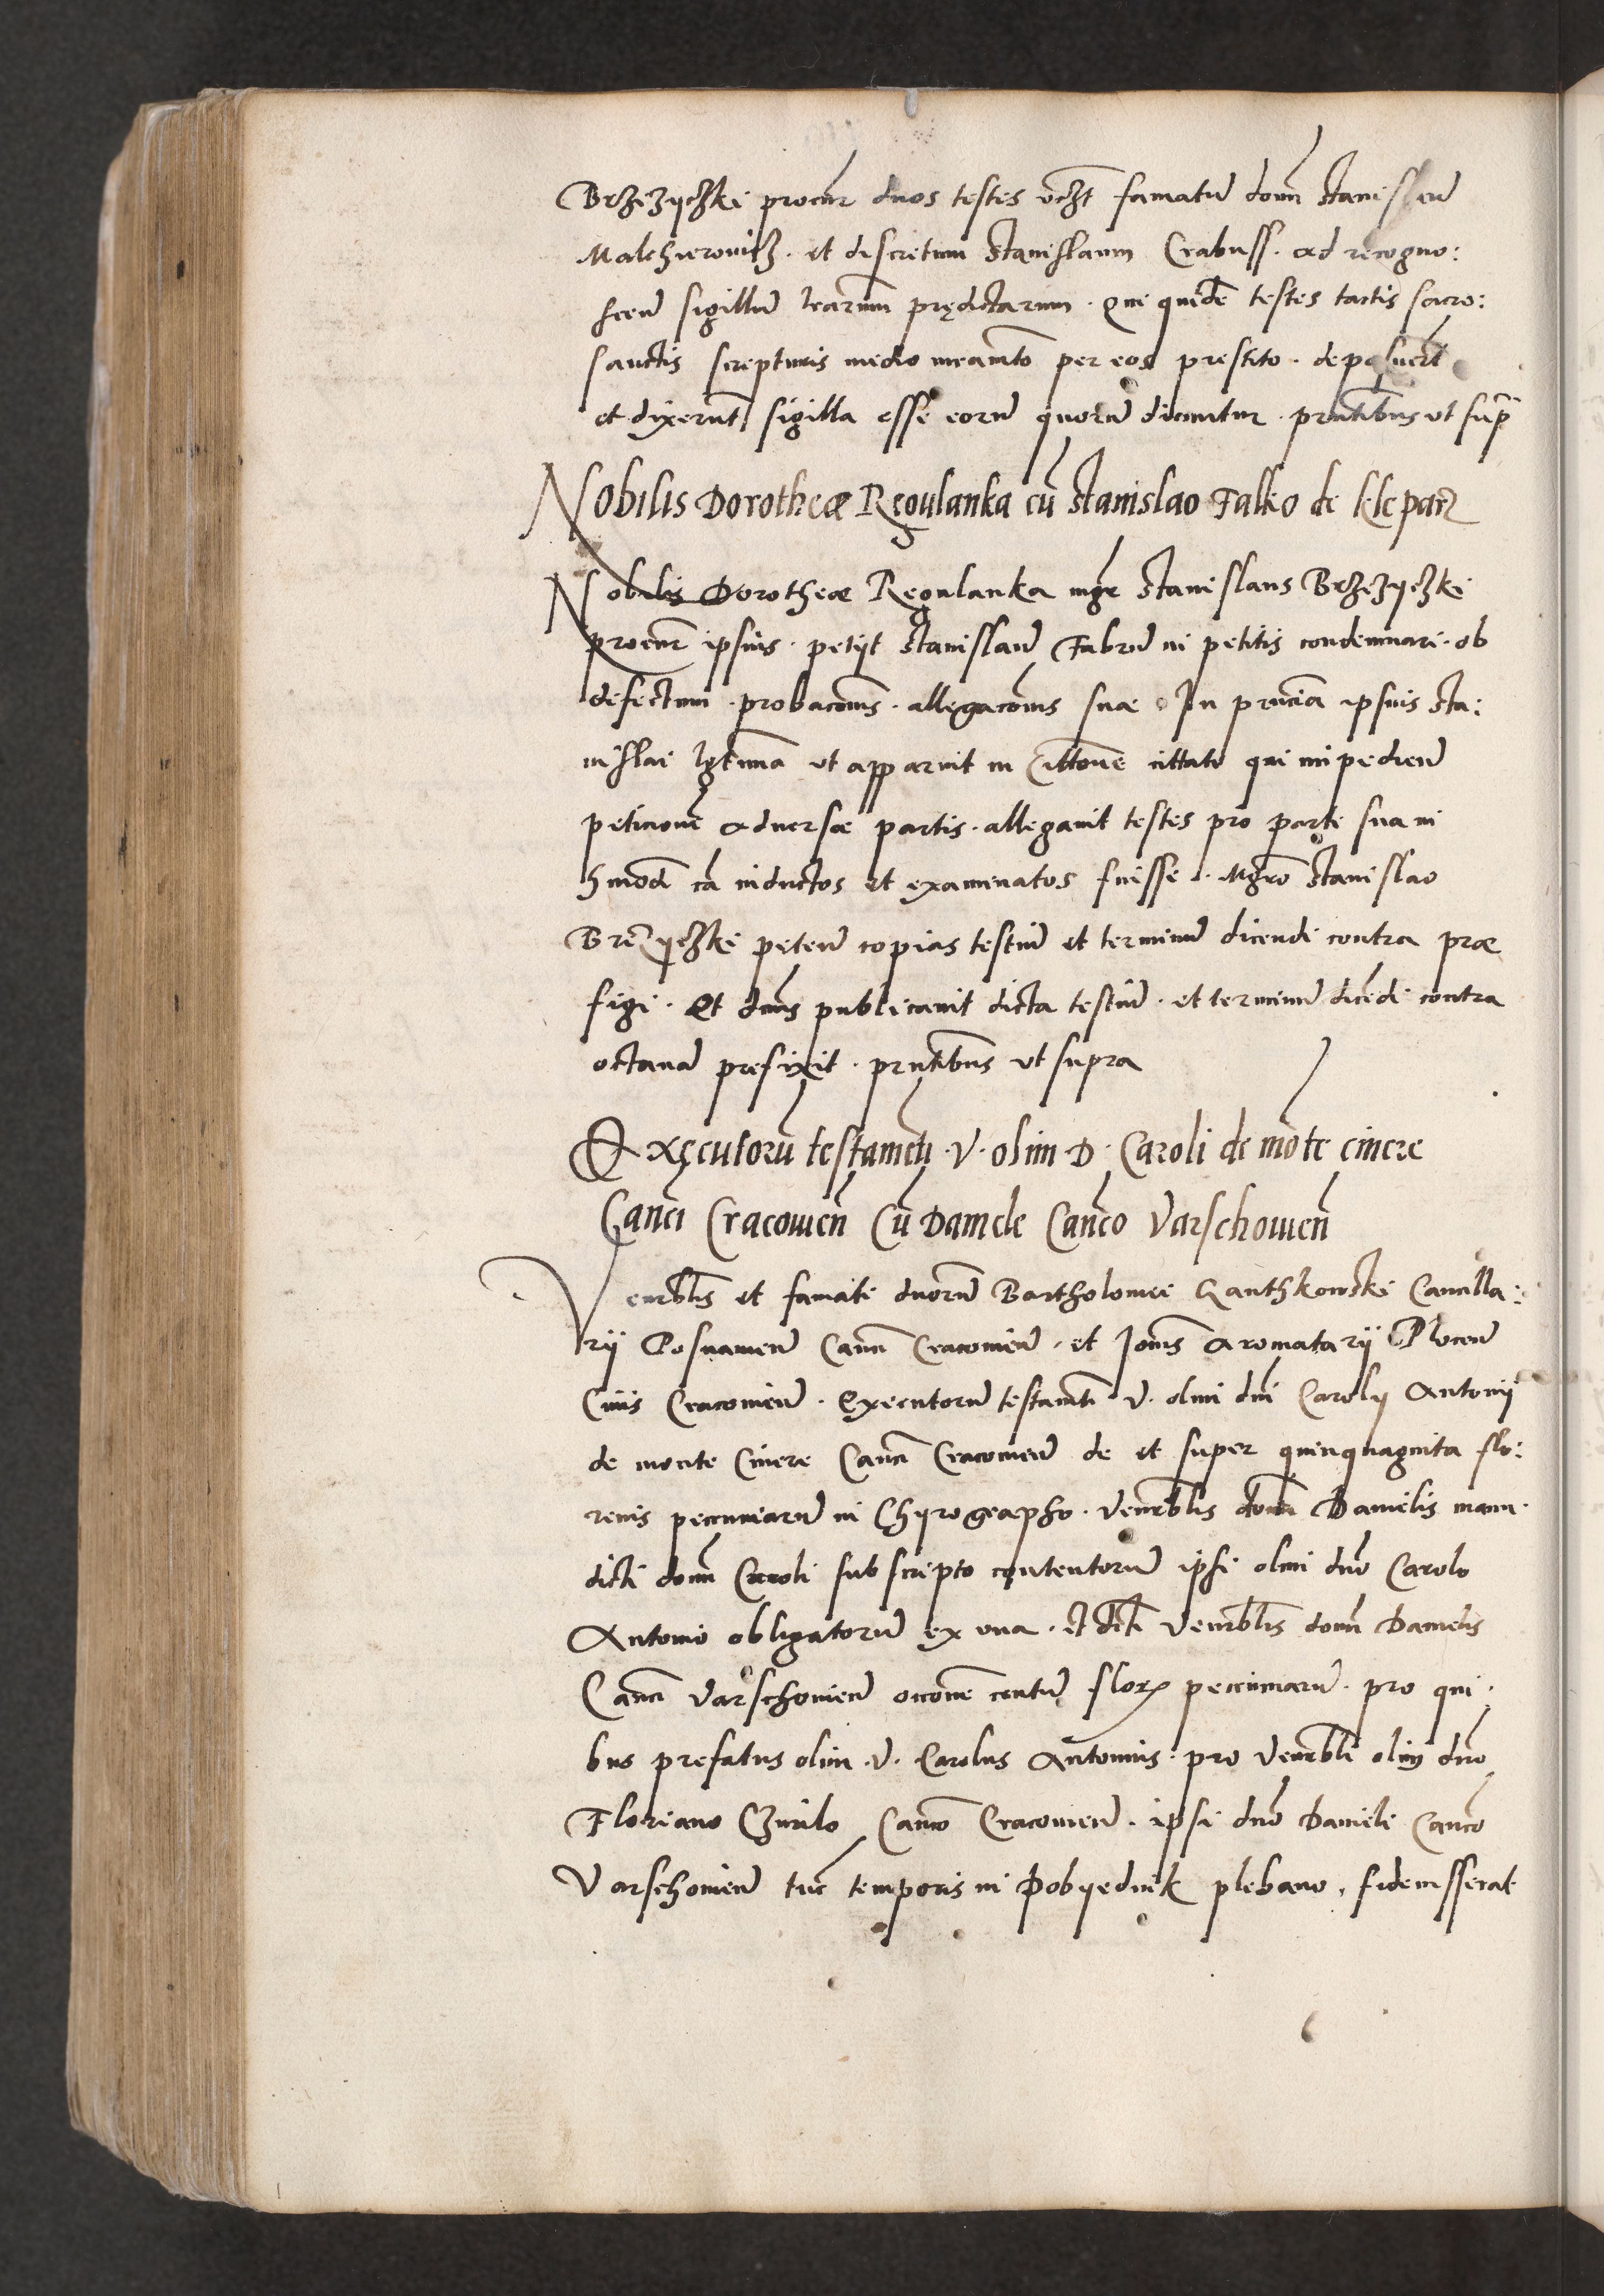 Brzezyczki procur̄ duos testes vc̄zt famatū domī Stanislaū
Malchierovitz . et discretum Stanislaum Crabuss . ad recogno:
scen̄ sigillū lrārum prędictarum . Qui quidē testes tactis sacro:
sanctis scripturis medio iuramto per eos prestito . deposuerūt
et dixerunt sigilla esse eorū quorū dicuntur . pn̄tibus ut supr̄
Nobilis Dorotheæ Regulanka cū Stanislao Falko de Klepar̄
Nobilis Dorotheæ Regulanka mgr̄ Stanislaus Brzezyczki
procur̄ ipsius . petijt Stanislaū Fabrū in petitis condemnari . ob
defectum . probacōnis . allegacōnis suæ . In pn̄tia ipsius Sta:
nislai lgt̄ima ut apparuit in Cittōne cittato qui impedien̄
peticionē adversæ partis . allegavit testes pro parte sua in
hmōdi cā inductos et examinatos fuisse . Mgrō Stanislao
Brezyczki peten̄ copias testiū et terminū dicendi contra præ
figi . Et dn̄us publicavit dicta testiū . et terminū dicēdi contra
octavā prefixit . pn̄tibus ut supra
Executorū testamēti . V . olim . D . Caroli de mōte cinere
Canci Cracovien̄ Cū Daniele Canco Varschovien̄
Venerblis et famati dnorū Bartholomei Ganthkowski Cancilla:
rij Posnanien̄ Canci Cracovien̄ . et Joannis Aromatarij Plocen̄
Civis Cracovien̄ . Executorū testamti . V . olim dnī Carolij Antonij
de monte Cinere Canci Cracovien̄ de et super quinquaginta flo:
renis pecuniarū in Chyrographo . venerblis domī Danielis manu .
dicti domī Caroli subscripto contentorū ipsi olim dno Carolo
Antonio obligatorū ex una . et dicti Venerblis domī Danielis
Canci Varschovien̄ occōne centū flor. pecuniarū . pro qui .
bus prefatus olim . V . Carolus Antonius . pro Venerbli olim dno
Floriano Czurilo Canco Cracovien̄ . ipsi dno Danieli Canco
Varschovien̄ tūc temporis in Pobyednik plebano . fideiusserat